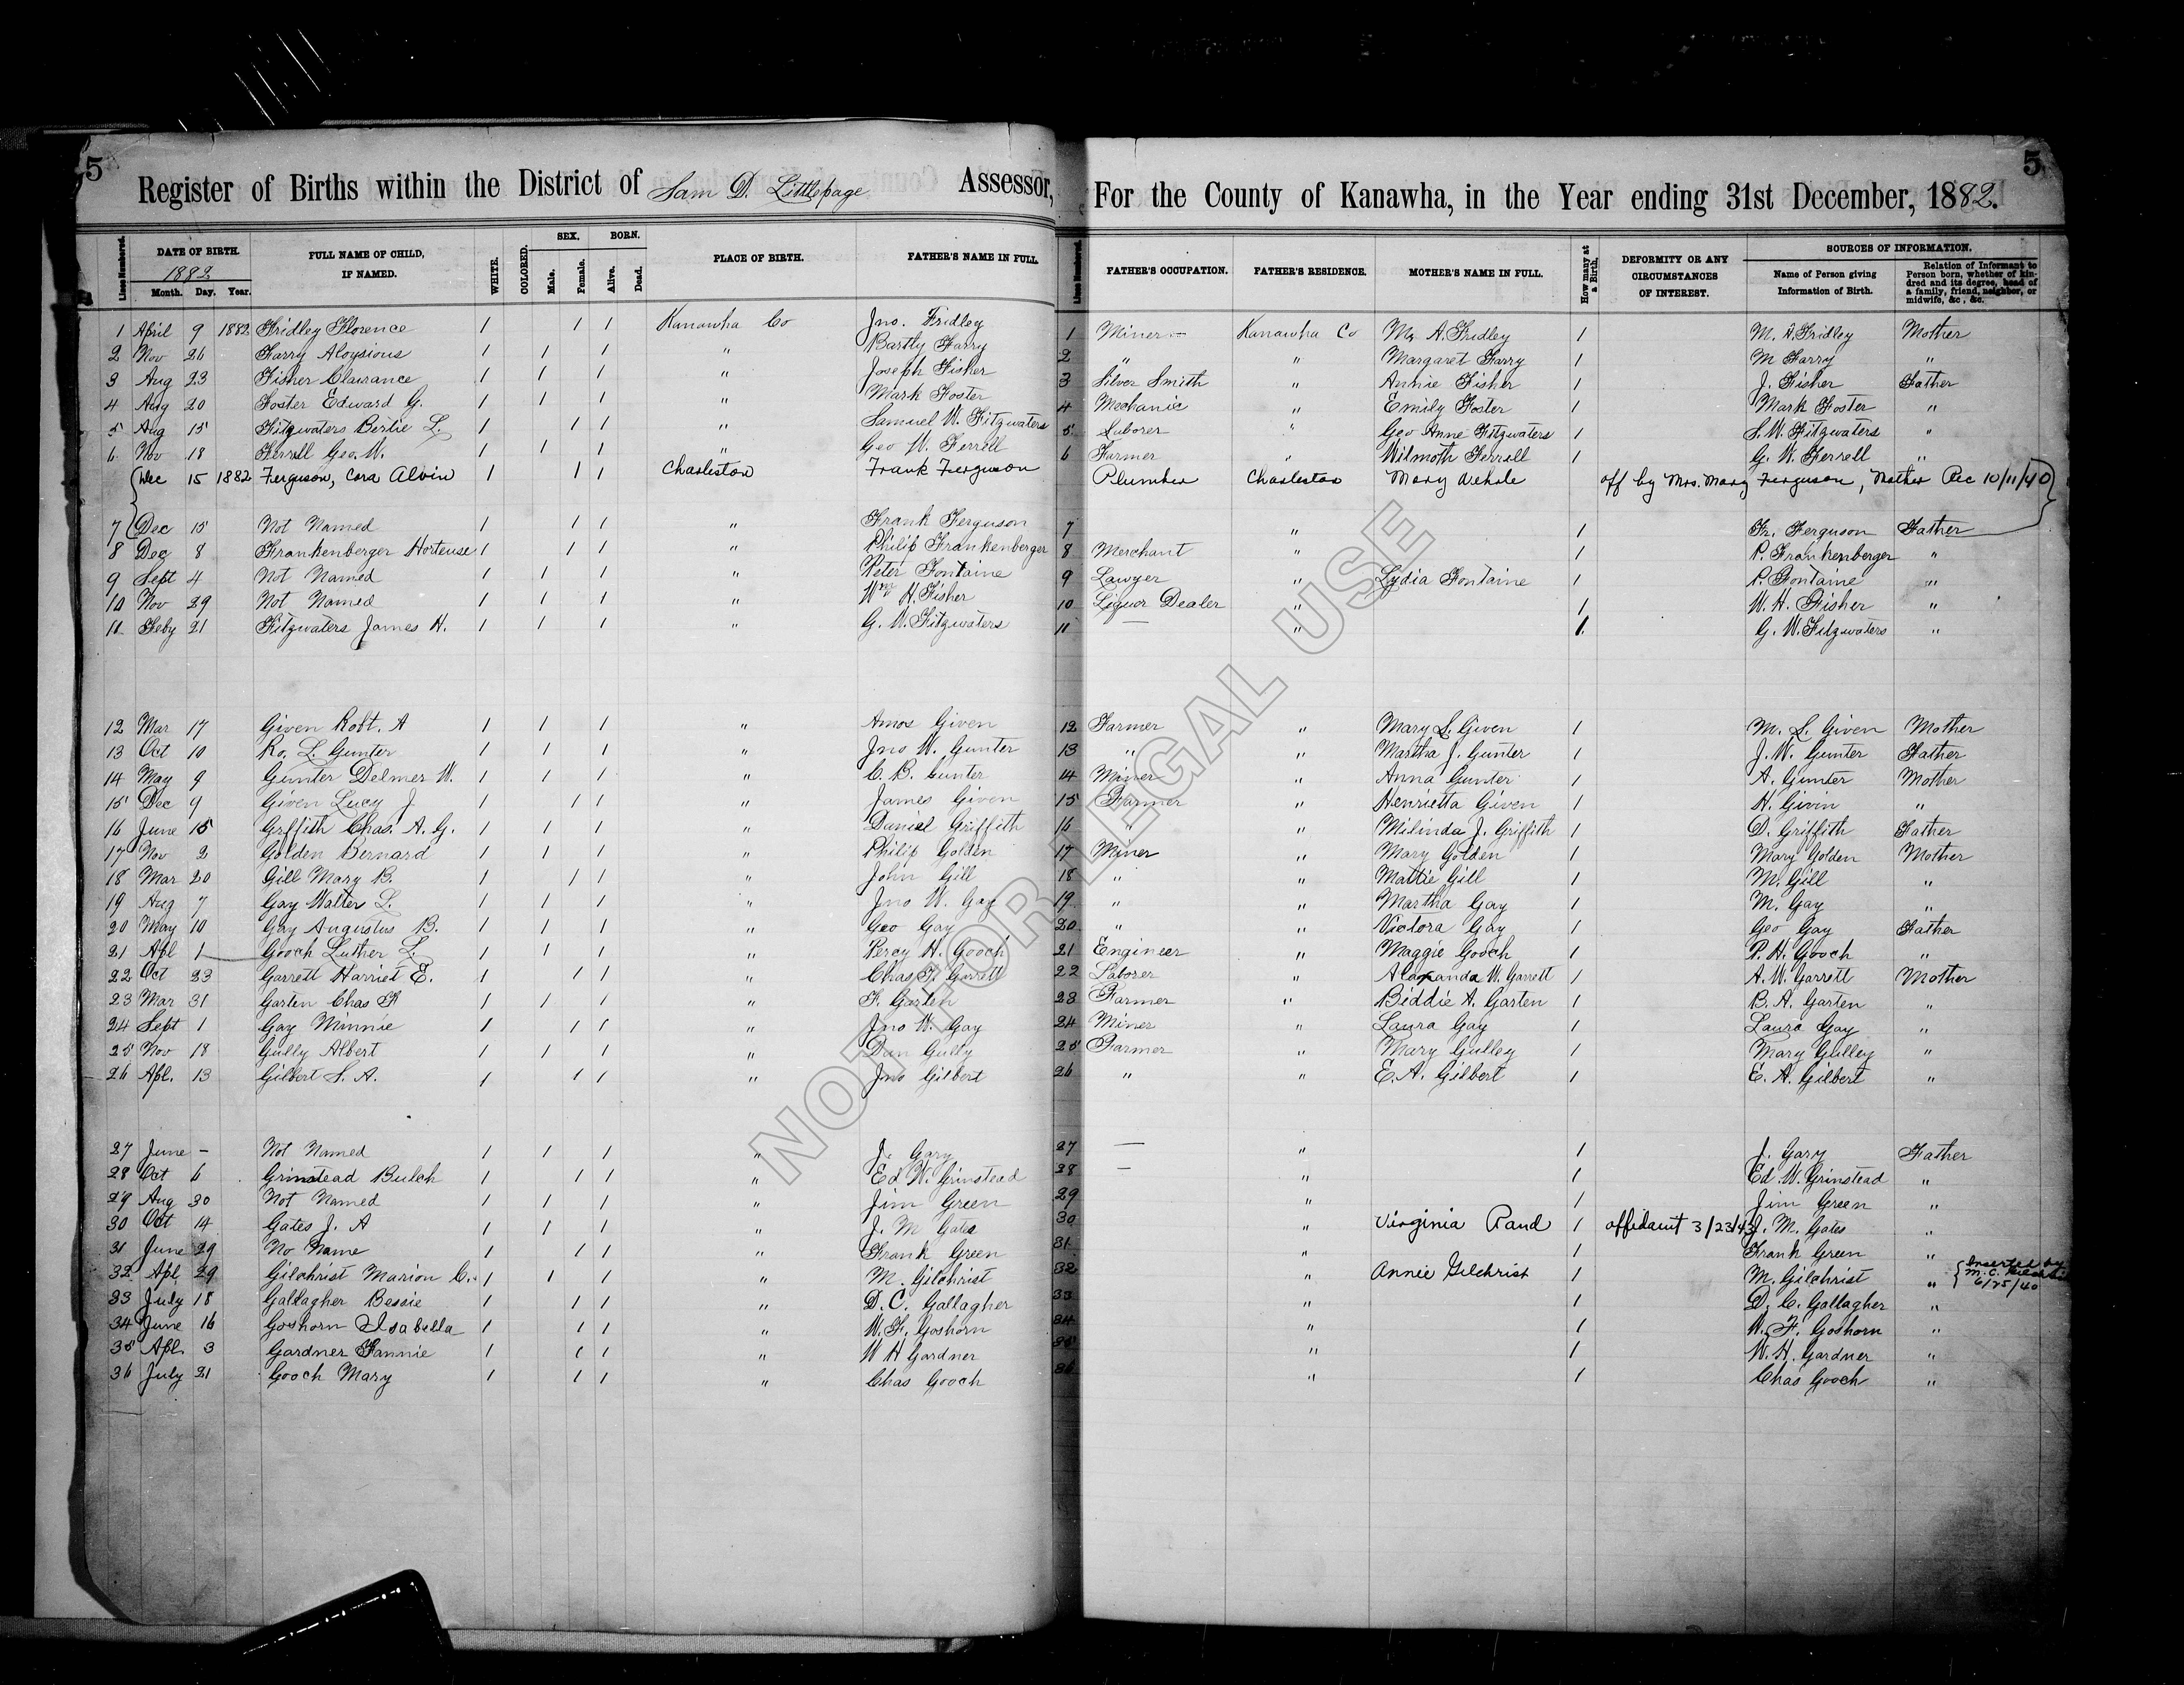 5
Register of Births within the District of Sam D. Littlepage Assessor, For the County of Kanawha, in the Year ending 31st December, 1882.
5
Lines Numbered. DATE OF BIRTH. 1882 Month. Day. Year. FULL NAME OF CHILD, IF NAMED. WHITE. COLORED. SEX. Male. Female. BORN. Alive. Dead. PLACE OF BIRTH. FATHER'S NAME IN FULL. Lines Numbered. FATHER'S OCCUPATION. FATHER'S RESIDENCE. MOTHER'S NAME IN FULL. How many at a Birth. DEFORMITY OR ANY CIRCUMSTANCES OF INTEREST. SOURCES OF INFORMATION. Name of Person giving Information of Birth. Relation of Informant to Person born, whether of kindred and its degree, head of a family, friend, neighbor, or midwife, &c., &c.
1 April 9 1882 Fridley Florence 1 1 1 Kanawha Co Jno. Fridley 1 Miner Kanawha Co M. A. Fridley 1 M. A. Fridley Mother
2 Nov 26 Farry Aloysious 1 1 1 " Bartly Farry 2 " " Margaret Farry 1 M Farry "
3 Aug 23 Fisher Clairance 1 1 1 " Joseph Fisher 3 Silver Smith " Annie Fisher 1 J. Fisher Father
4 Aug 20 Foster Edward G. 1 1 1 " Mark Foster 4 Mechanic " Emily Foster 1 Mark Foster "
5 Aug 15 Fitzwaters Bertie L. 1 1 1 " Samuel W. Fitzwaters 5 Laborer " Geo Anne Fitzwaters 1 S. W. Fitzwaters "
6 Nov 18 Ferrell Geo. W. 1 1 1 " Geo W. Ferrell 6 Farmer " Wilmoth Ferrell 1 G. W. Ferrell "
Dec 15 1882 Ferguson, Cora Alvin 1 1 1 Charleston Frank Ferguson Plumber Charleston Mary Wehrle aff by Mrs. Mary Ferguson, Mother Rec 10/11/40
7 Dec 15 Not Named 1 1 1 " Frank Ferguson 7 " 1 Fr. Ferguson Father
8 Dec 8 Frankenberger Hortense 1 1 1 " Philip Frankenberger 8 Merchant " 1 P. Frankenberger "
9 Sept 4 Not Named 1 1 1 " Peter Fontaine 9 Lawyer " Lydia Fontaine 1 P. Fontaine "
10 Nov 29 Not Named 1 1 1 " Wm H. Fisher 10 Liquor Dealer " 1 W. H. Fisher "
11 Feby 21 Fitzwaters James H. 1 1 1 " G. W. Fitzwaters 11 — " 1 G. W. Fitzwaters "
12 Mar 17 Given Robt. A 1 1 1 " Amos Given 12 Farmer " Mary L. Given 1 M. L. Given Mother
13 Oct 10 Ro, L. Gunter 1 1 1 " Jno W. Gunter 13 " " Martha J. Gunter 1 J. W. Gunter Father
14 May 9 Gunter Delmer W. 1 1 1 " C. B. Gunter 14 Miner " Anna Gunter 1 A. Gunter Mother
15 Dec 9 Given Lucy J 1 1 1 " James Given 15 Farmer " Henrietta Given 1 H. Givin "
16 June 15 Grffith Chas. A. G. 1 1 1 " Daniel Griffith 16 " " Milinda J. Griffith 1 D. Griffith Father
17 Nov 2 Golden Bernard 1 1 1 " Philip Golden 17 Miner " Mary Golden 1 Mary Golden Mother
18 Mar 20 Gill Mary B. 1 1 1 " John Gill 18 " " Mattie Gill 1 M. Gill "
19 Aug 7 Gay Walter L. 1 1 1 " Jno W. Gay 19 " " Martha Gay 1 M. Gay "
20 May 10 Gay Augustus B. 1 1 1 " Geo Gay 20 " " Victora Gay 1 Geo Gay Father
21 Apl 1 Gooch Luther L. 1 1 1 " Percy H. Gooch 21 Engineer " Maggie Gooch 1 P. H. Gooch "
22 Oct 23 Garrett Harriet E. 1 1 1 " Chas. F. Garrett 22 Laborer " W. Garrett 1 A. W. Garrett Mother
23 Mar 31 Garten Chas F 1 1 1 " F. Garten 23 Farmer " Biddie A. Garten 1 B. A. Garten "
24 Sept 1 Gay Minnie 1 1 1 " Jno W. Gay 24 Miner " Laura Gay 1 Laura Gay "
25 Nov 18 Gully Albert 1 1 1 " Dan Gully 25 Farmer " Mary Gulley 1 Mary Gulley "
26 Apl. 13 Gilbert S. A. 1 1 1 " Jno Gilbert 26 " " E. A. Gilbert 1 E. A. Gilbert "
27 June - Not Named 1 1 1 " J. Gary 27 — " 1 J. Gary Father
28 Oct 6 Grinstead Bulch 1 1 1 " Ed W. Grinstead 28 — " 1 Ed. W. Grinstead "
29 Aug 30 Not Named 1 1 1 " Jim Green 29 " 1 Jim Green "
30 Oct 14 Gates J. A 1 1 1 " J. M Gates 30 " Virginia Rand 1 affidavit 3/23/43 J. M. Gates "
31 June 29 No Name 1 1 1 " Frank Green 31 " 1 Frank Green "
32 Apl 29 Gilchrist Marion C. 1 1 1 " M. Gilchrist 32 " Annie Gilchrist 1 M. Gilchrist " Inserted by M. C. 6/25/40
33 July 18 Gallagher Bessie 1 1 1 " D. C. Gallagher 33 " 1 D. C. Gallagher "
34 June 16 Goshorn Isabella 1 1 1 " W. F. Goshorn 34 " 1 W. F. Goshorn "
35 Apl. 3 Gardner Fannie 1 1 1 " W H Gardner 35 " 1 W. H. Gardner "
36 July 21 Gooch Mary 1 1 1 " Chas Gooch 36 " 1 Chas Gooch "
NOT FOR LEGAL USE